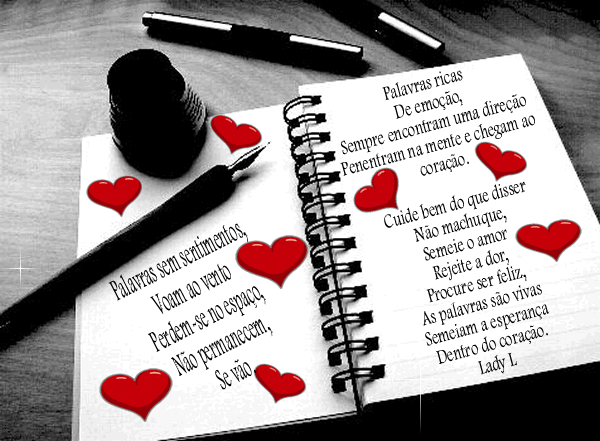 Palavras sem sentimentos,
Voam ao vento
Perdem-se no espaço,
Não permanecem,
Se vão .
Palavras ricas
De emoção,
Sempre encontram uma direção
Penentram na mente e chegam ao
coração.
Cuide bem do que disser
Não machuque,
Semeie o amor
Rejeite a dor,
Procure ser feliz,
As palavras são vivas
Semeiam a esperança
Dentro do coração.
Lady L